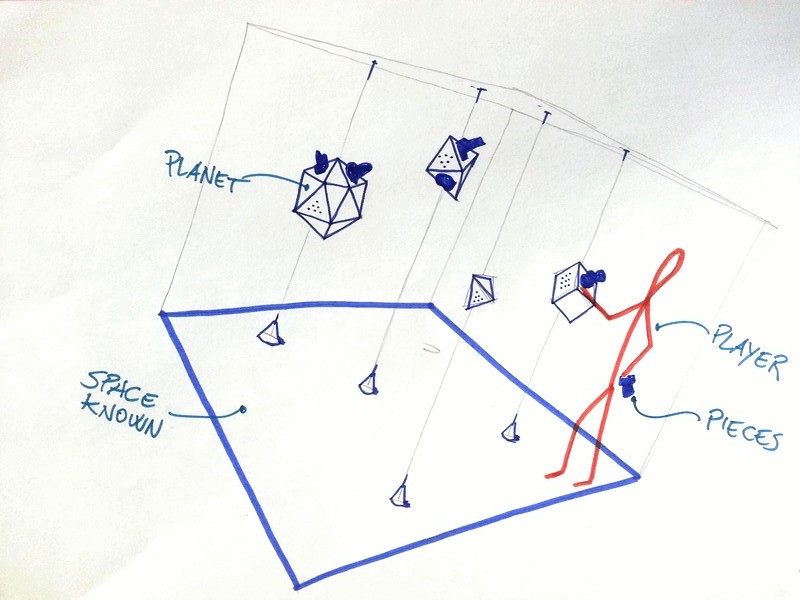 PLANET
SPACE
KNOWN
PLAYER
PIECES